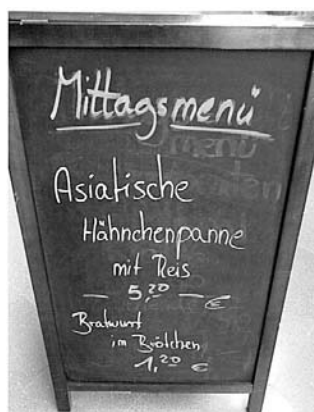 Mittagsmenü
Asiatische
Hähnchenpanne
mit Reis
— 5,20 — €
Bratwurt
im Brötchen
1,20 €